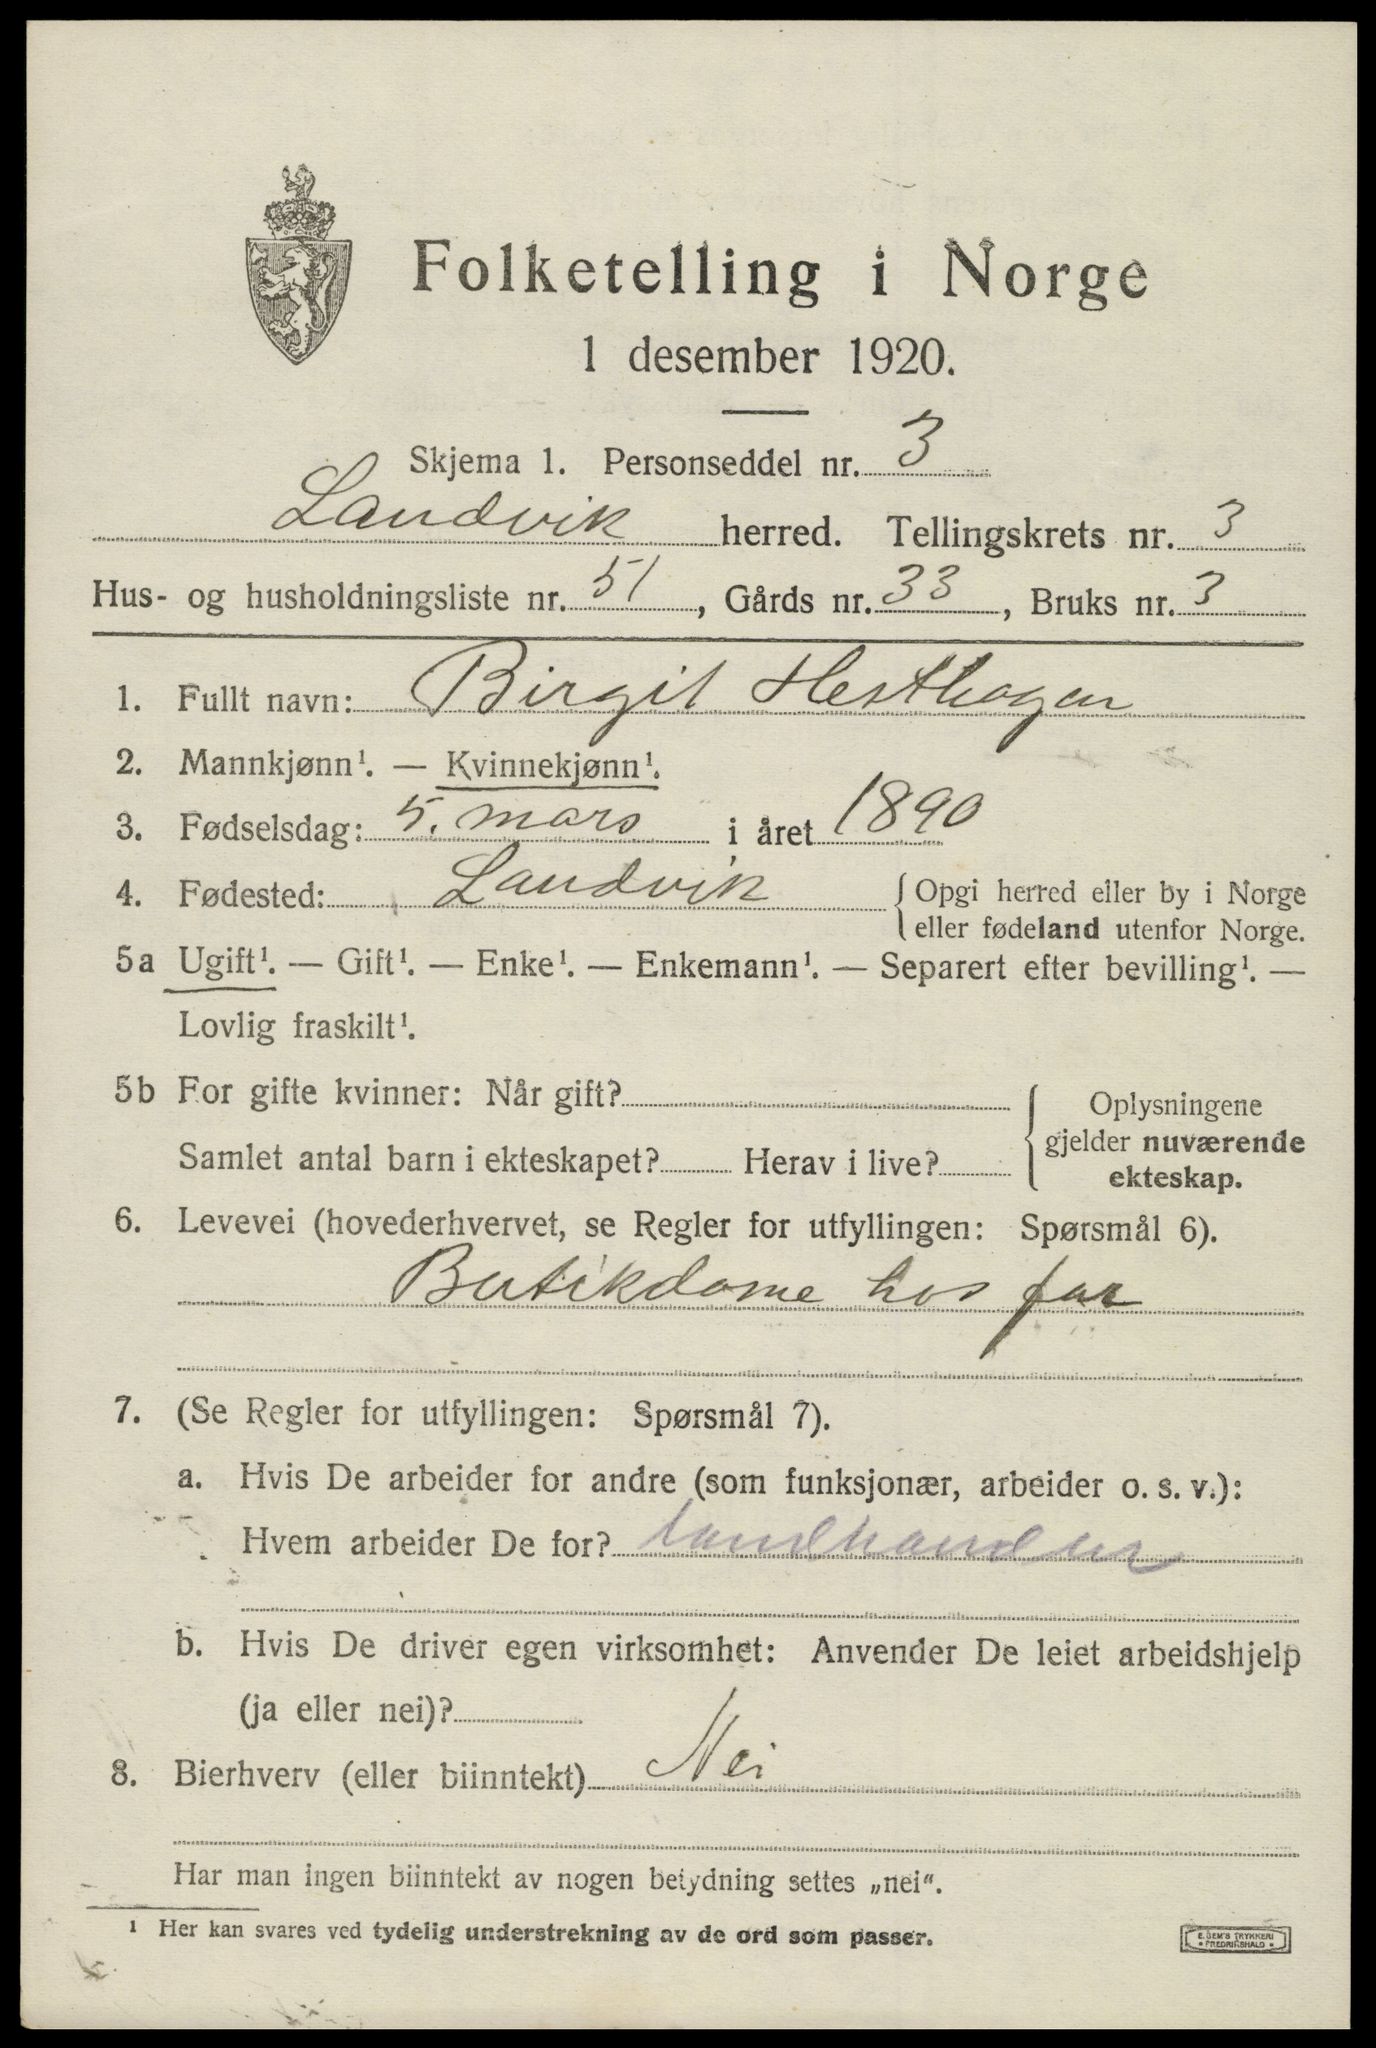 Folketelling i Norge
1 desember 1920.
Skjema 1. Personseddel nr. 3
Landvik herred. Tellingskrets nr. 3
Hus- og husholdningsliste nr. 51, Gårds nr. 33, Bruks nr. 3
1. Fullt navn: Birgit Hesthagen
2. Mannkjønn¹. — Kvinnekjønn¹.
3. Fødselsdag: 5. mars i året 1890
4. Fødested: Landvik { Opgi herred eller by i Norge
eller fødeland utenfor Norge.
5a Ugift¹. — Gift¹. — Enke¹. — Enkemann¹. — Separert efter bevilling¹. —
Lovlig fraskilt¹.
5b For gifte kvinner: Når gift? { Oplysningene
gjelder nuværende
Samlet antal barn i ekteskapet? Herav i live?
ekteskap.
6. Levevei (hovederhvervet, se Regler for utfyllingen: Spørsmål 6).
Butikdame hos far
7. (Se Regler for utfyllingen: Spørsmål 7).
a. Hvis De arbeider for andre (som funksjonær, arbeider o. s. v.):
Hvem arbeider De for? landhandler
b. Hvis De driver egen virksomhet: Anvender De leiet arbeidshjelp
(ja eller nei)?
8. Bierhverv (eller biinntekt) Nei
Har man ingen biinntekt av nogen betydning settes „nei“.
¹ Her kan svares ved tydelig understrekning av de ord som passer.
E. SEM'S TRYKKERI
FREDRIKSHALD